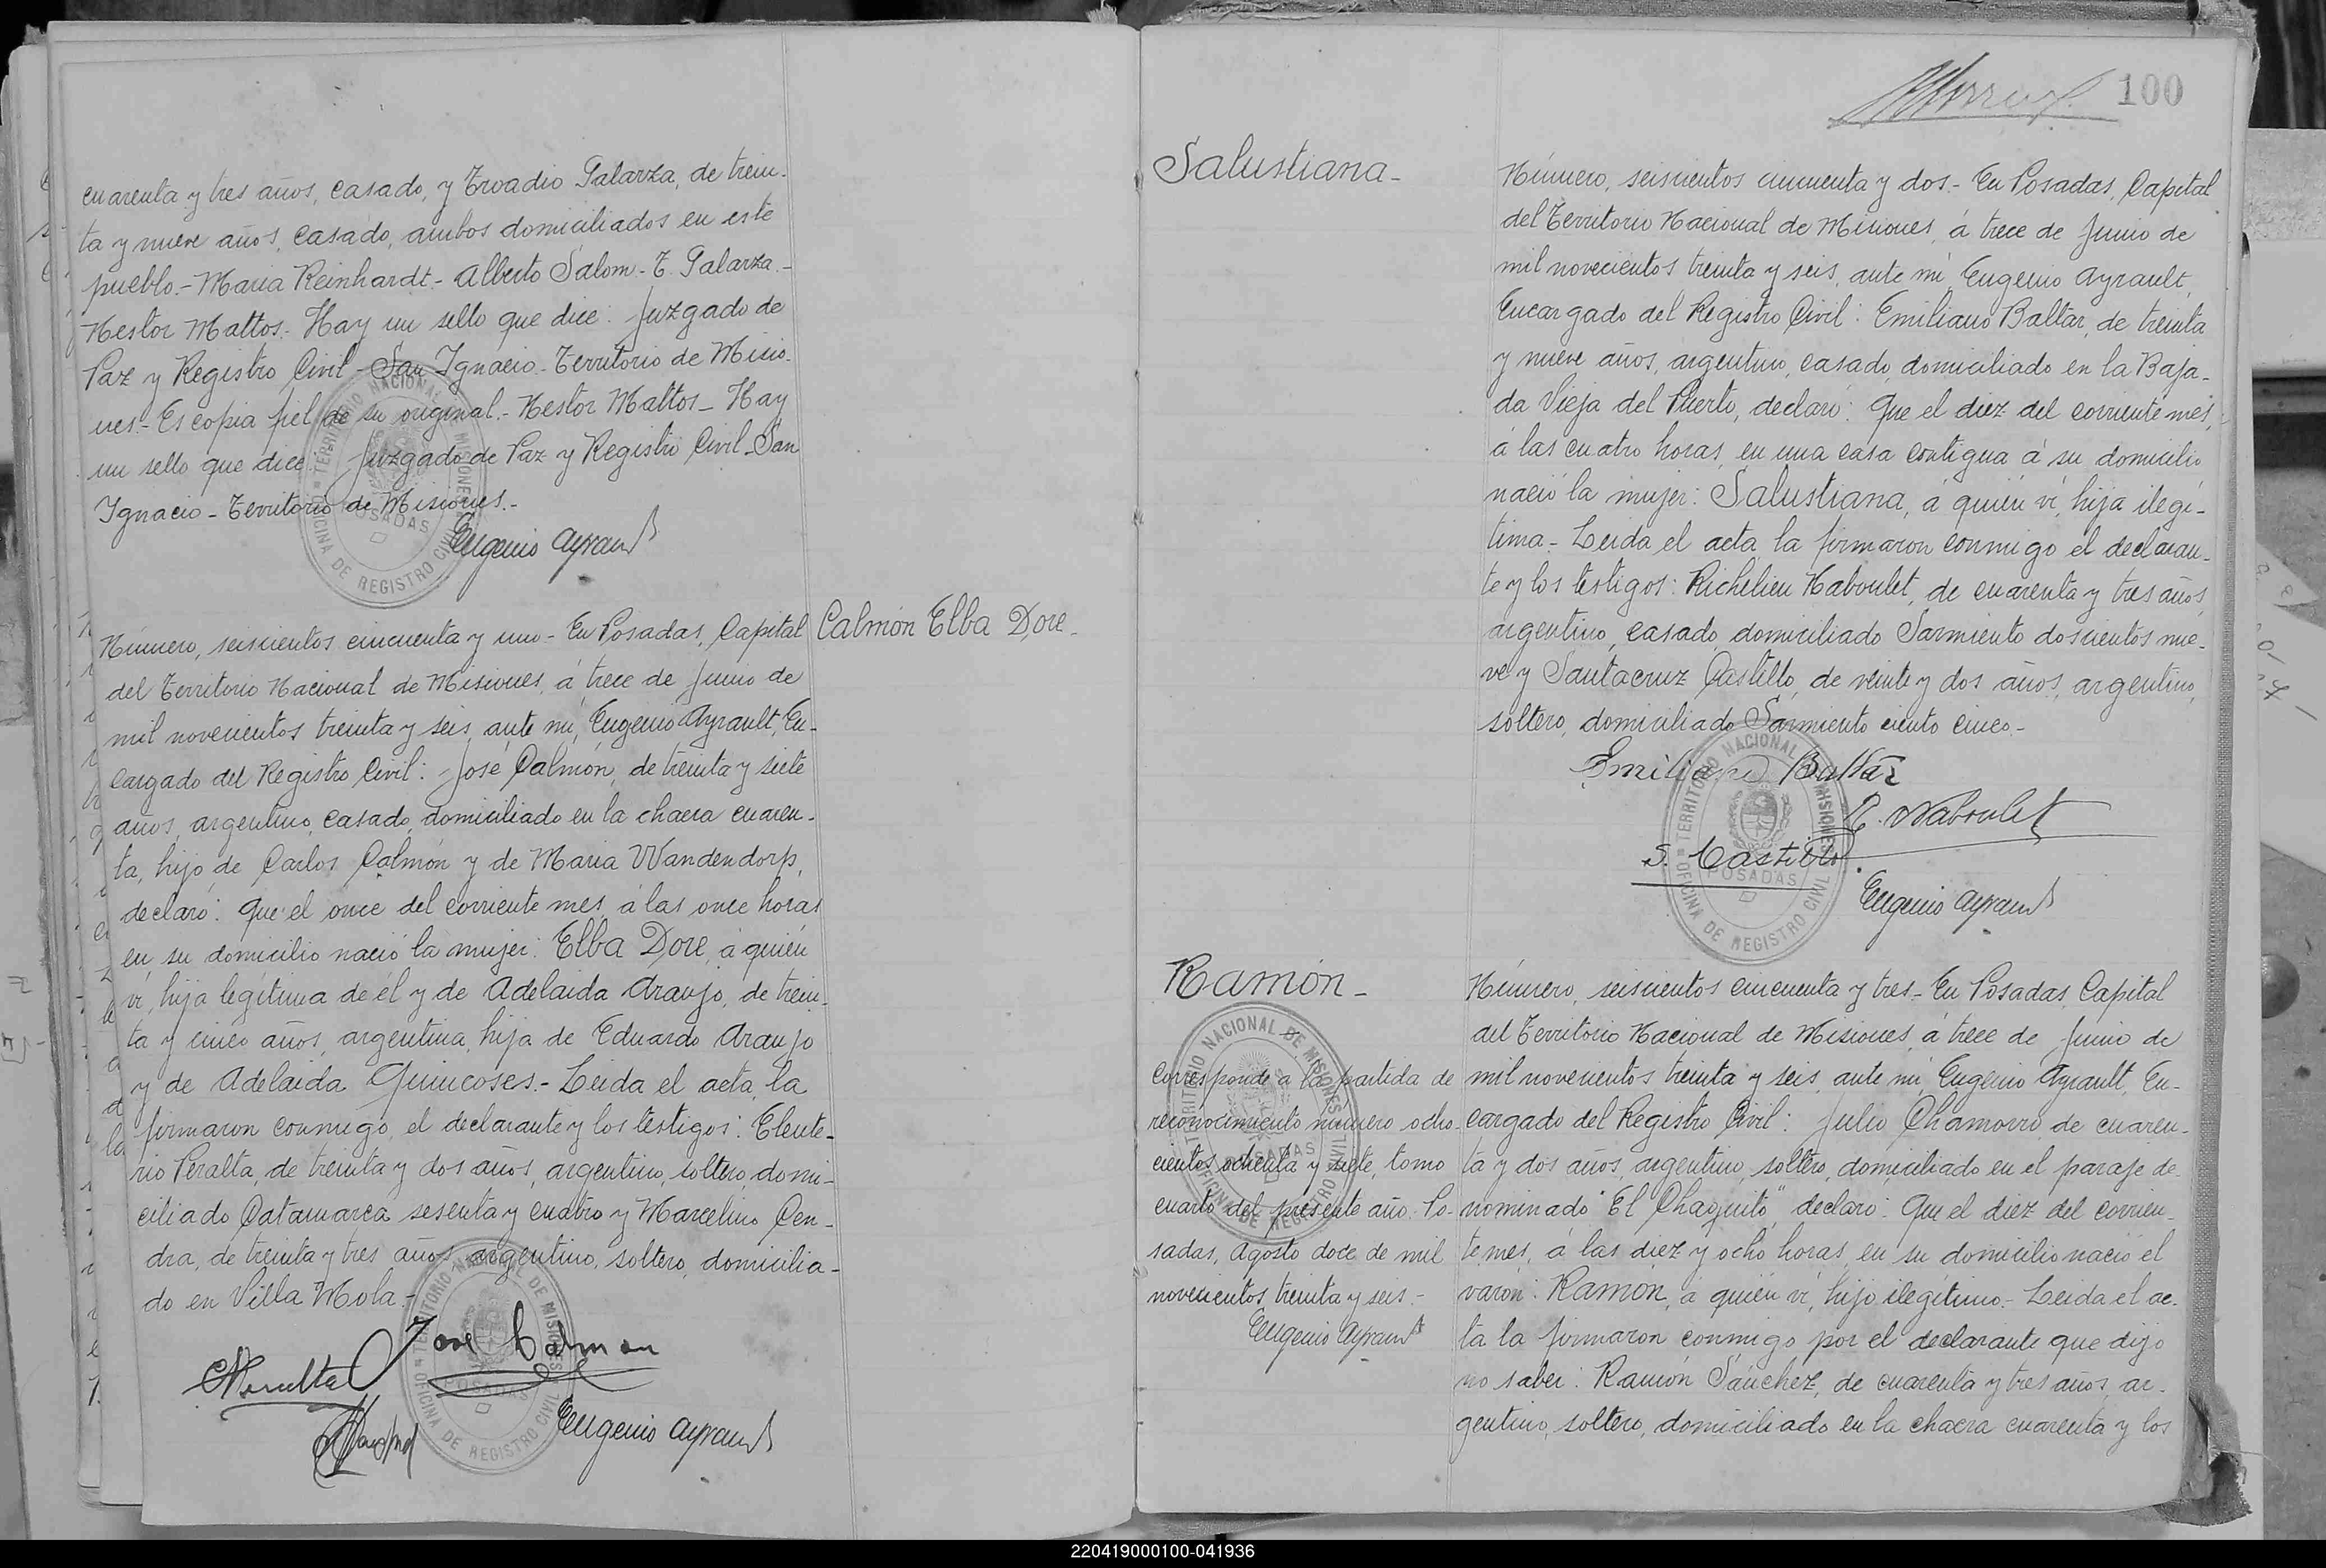 cuarenta y tres años, casado, y Troadio Galarza, de trein-
ta y nueve años, casado, ambos domiciliados en este
pueblo.- Maria Reinhardt.- Alberto Salom.- T. Galarza.-
Nestor Mattos.- Hay un sello que dice: Juzgado de
Paz y Registro Civil - San Ignacio - Territorio de Misio-
nes.- Es copia fiel de su original.- Nestor Mattos - Hay
un sello que dice: Juzgado de Paz y Registro Civil - San
Ignacio - Territorio de Misiones.-
Eugenio Ayrault
Calmón Elba Dore.
Número, seiscientos cincuenta y uno - En Posadas, Capital
del Territorio Nacional de Misiones, á trece de Junio de
mil novecientos treinta y seis, ante mi, Eugenio Ayrault, En-
cargado del Registro Civil: José Calmón, de treinta y siete
años, argentino, casado, domiciliado en la chacra cuaren-
ta, hijo de Carlos Calmón y de Maria Wandendorp,
declaró: Que el once del corriente mes, á las once horas
en su domicilio nació la mujer: Elba Dore, á quién
ví, hija legítima de él y de Adelaida Araujo, de trein-
ta y cinco años, argentina, hija de Eduardo Araujo
y de Adelaida Quincoses.- Leida el acta, la
firmaron conmigo, el declarante y los testigos: Eleute-
rio Peralta, de treinta y dos años, argentino, soltero, domi-
ciliado Catamarca sesenta y cuatro y Marcelino Cen-
dra, de treinta y tres años, argentino, soltero, domicilia-
do en Villa Mola.-
Jose Calmon
EPeralta
Eugenio Ayrault
100
Salustiana -
Número, seiscientos cincuenta y dos.- En Posadas, Capital
del Territorio Nacional de Misiones, á trece de Junio de
mil novecientos treinta y seis, ante mi, Eugenio Ayrault,
Encargado del Registro Civil: Emiliano Baltar, de treinta
y nueve años, argentino, casado, domiciliado en la Baja-
da Vieja del Puerto, declaró: Que el diez del corriente mes,
á las cuatro horas, en una casa contigua á su domicilio
nació la mujer: Salustiana, á quién ví, hija ilegi-
tima - Leida el acta, la firmaron conmigo el declaran-
te y los testigos: Richelieu Naboulet, de cuarenta y tres años,
argentino, casado, domiciliado Sarmiento doscientos nue-
ve y Santacruz Castillo, de veinte y dos años, argentino,
soltero, domiciliado Sarmiento ciento cinco.-
Emiliano Baltar
R. Naboulet
S. Castillo
Eugenio Ayrault
Ramón -
Corresponde a la partida de
reconocimiento número ocho-
cientos ochenta y siete, tomo
cuarto del presente año. Po-
sadas, Agosto doce de mil
novecientos treinta y seis.-
Eugenio Ayrault
Número, seiscientos cincuenta y tres - En Posadas, Capital
del Territorio Nacional de Misiones, á trece de Junio de
mil novecientos treinta y seis, ante mi, Eugenio Ayrault, En-
cargado del Registro Civil: Julio Chamorro, de cuaren-
ta y dos años, argentino, soltero, domiciliado en el paraje de-
nominado "El Chaquito" declaró: Que el diez del corrien-
te mes, á las diez y ocho horas, en su domicilio nació el
varón: Ramón, á quién ví, hijo ilegitimo.- Leida el ac-
ta la firmaron conmigo por el declarante que dijo
no saber: Ramón Sánchez, de cuarenta y tres años, ar-
gentino, soltero, domiciliado en la chacra cuarenta y los
TERRITORIO NACIONAL DE MISIONES
POSADAS
OFICINA DE REGISTRO CIVIL
220419000100-041936